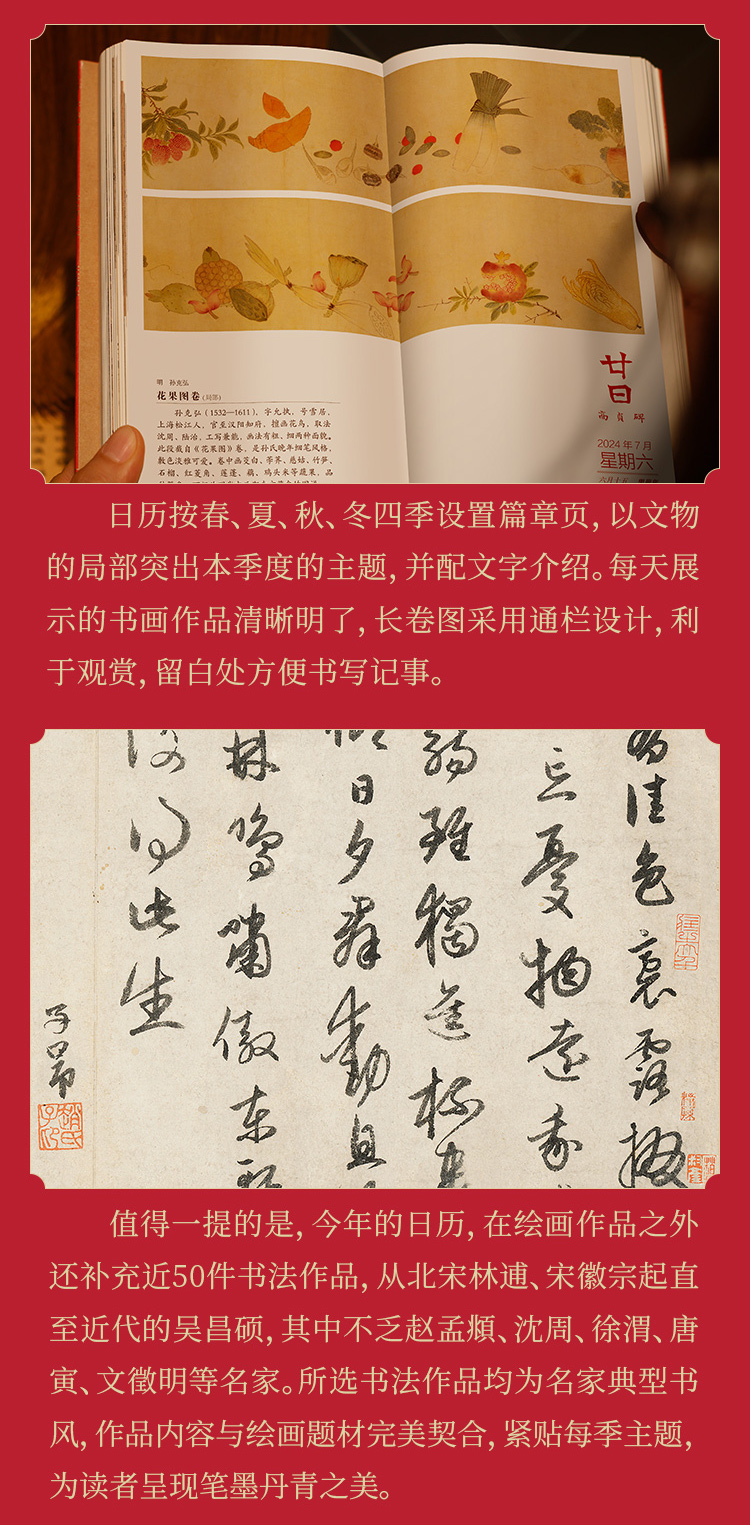 明 孙克弘
花果图卷(局部)
孙克弘(1532—1611),字允执,号雪居,
上海松江人,官至汉阳知府,擅画花鸟,取法
沈周、陆治,工写兼能,画法有粗、细两种面貌。
此段截自《花果图》卷,是孙氏晚年细笔风格,
敷色淡雅可爱。卷中画茭白、荸荠、慈姑、竹笋、
石榴、红菱角、莲蓬、藕、鸡头米等蔬果,品
廿
日
高贞碑
2024年7月
星期六
六月十五
日历按春、夏、秋、冬四季设置篇章页,以文物
的局部突出本季度的主题,并配文字介绍。每天展
示的书画作品清晰明了,长卷图采用通栏设计,利
于观赏,留白处方便书写记事。
佳色裛露掇
忘憂物遠我
觴雖獨進杯
日夕群動息
林鳴嘯傲東
復得此生
子昂
值得一提的是,今年的日历,在绘画作品之外
还补充近50件书法作品,从北宋林逋、宋徽宗起直
至近代的吴昌硕,其中不乏赵孟頫、沈周、徐渭、唐
寅、文徵明等名家。所选书法作品均为名家典型书
风,作品内容与绘画题材完美契合,紧贴每季主题,
为读者呈现笔墨丹青之美。